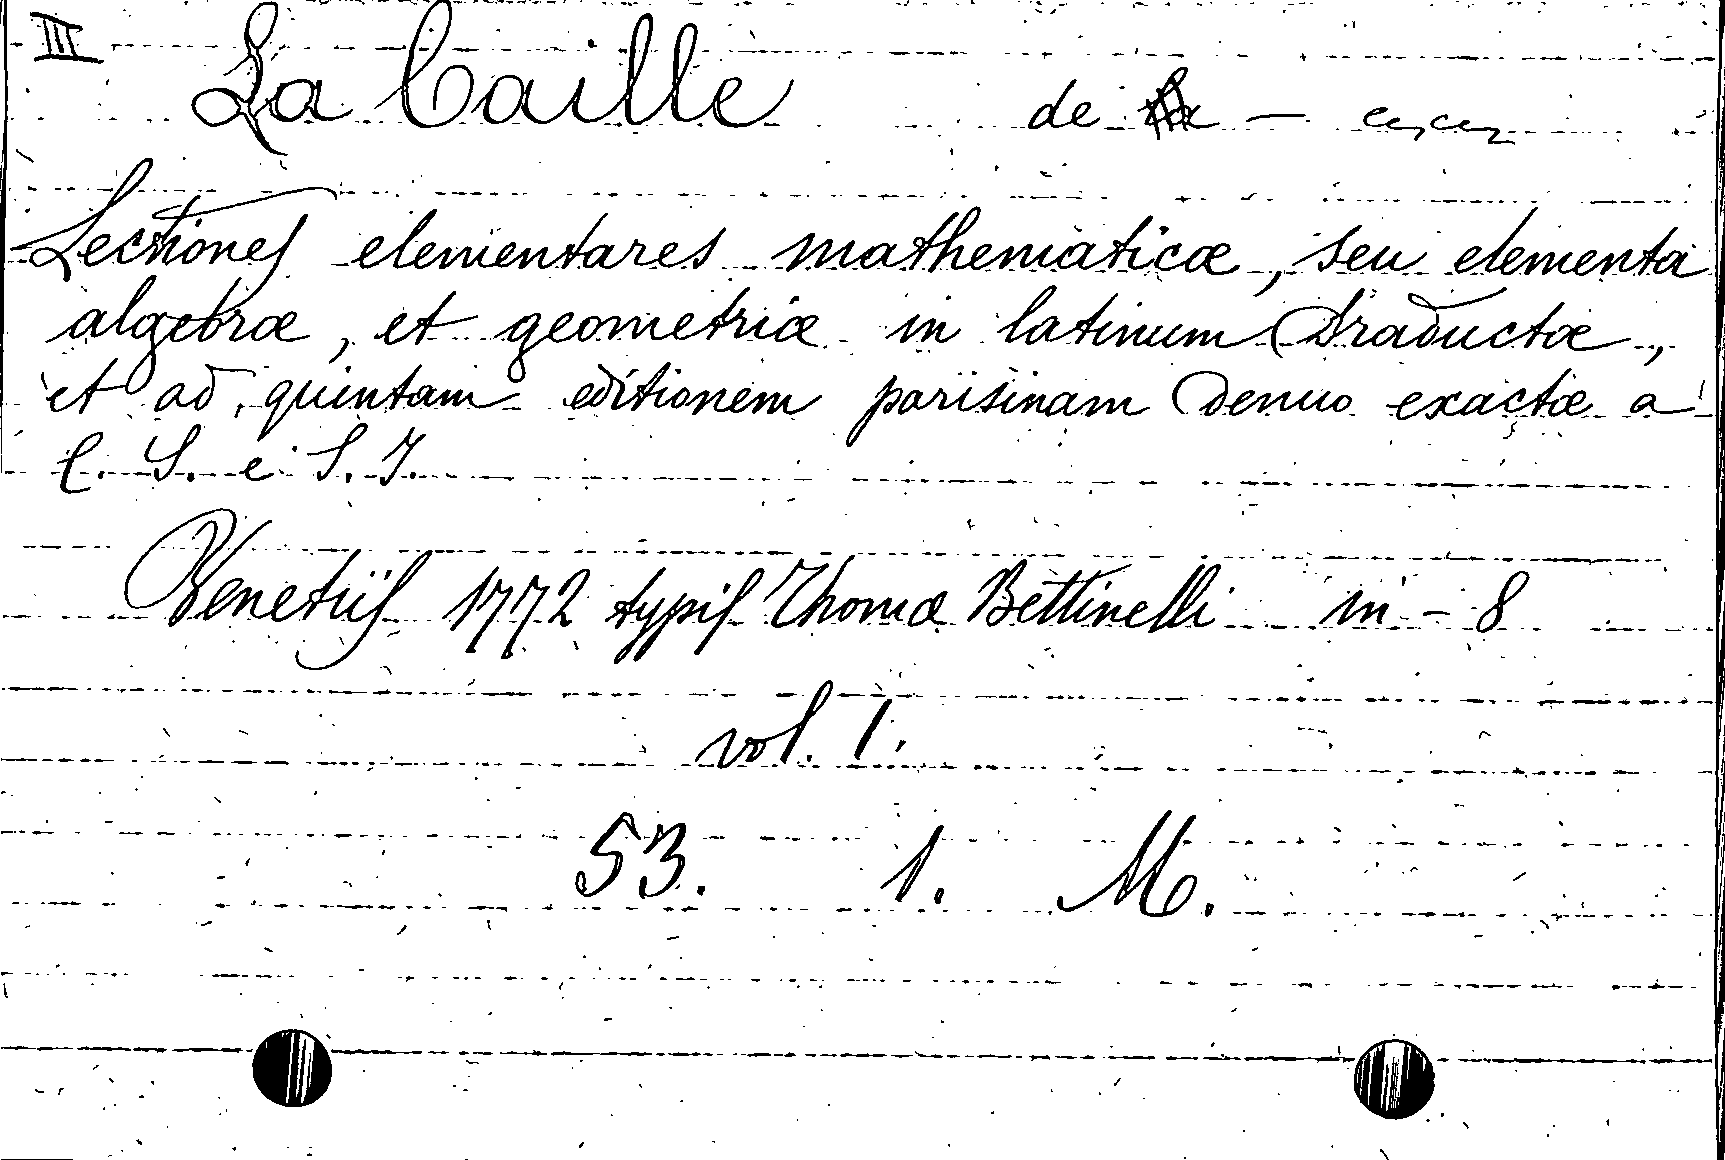 III La Caille de —
Lectiones elementares mathematicæ, seu elementa
algebræ, et geometriæ in latinum traductæ,
et ad quintam editionem parisinam denuo exactæ a
C. S. e S. J.
Venetiis 1772 typis Thomæ Bettinelli in - 8
vol. 1.
53. 1. M.